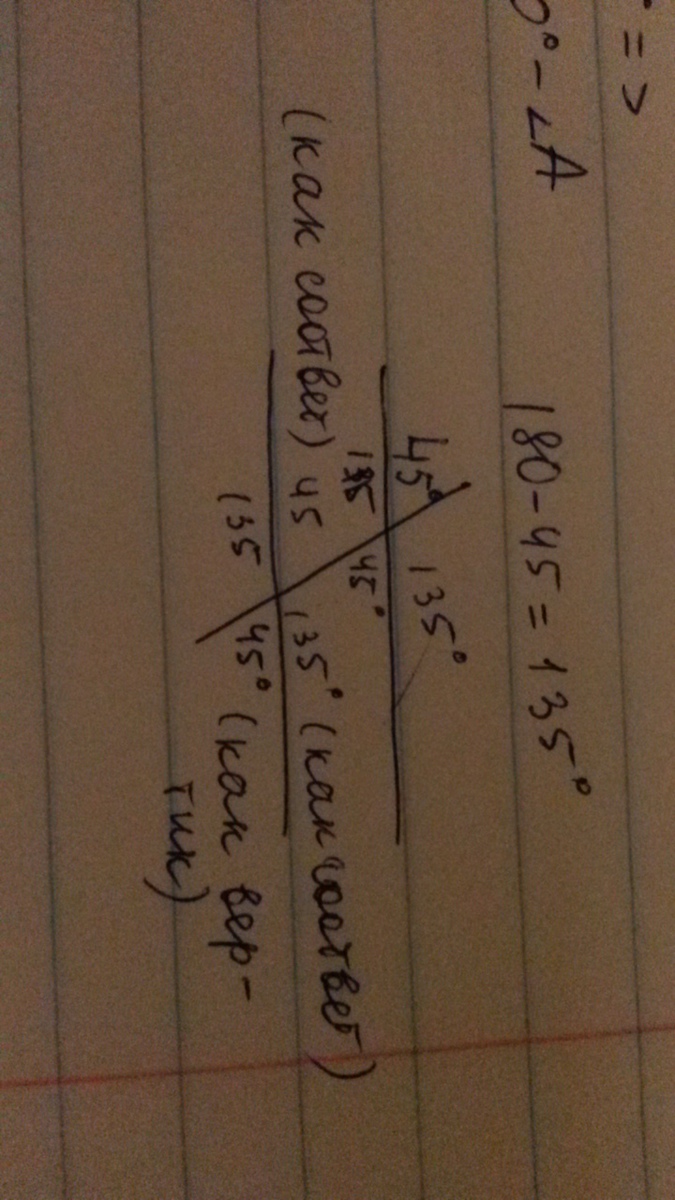 ° =>
0° - ∠A
180 - 45 = 135°
45° 135°
135 45°
(как соответ) 45 135° (как соответ)
135 45° (как вер-
тик)